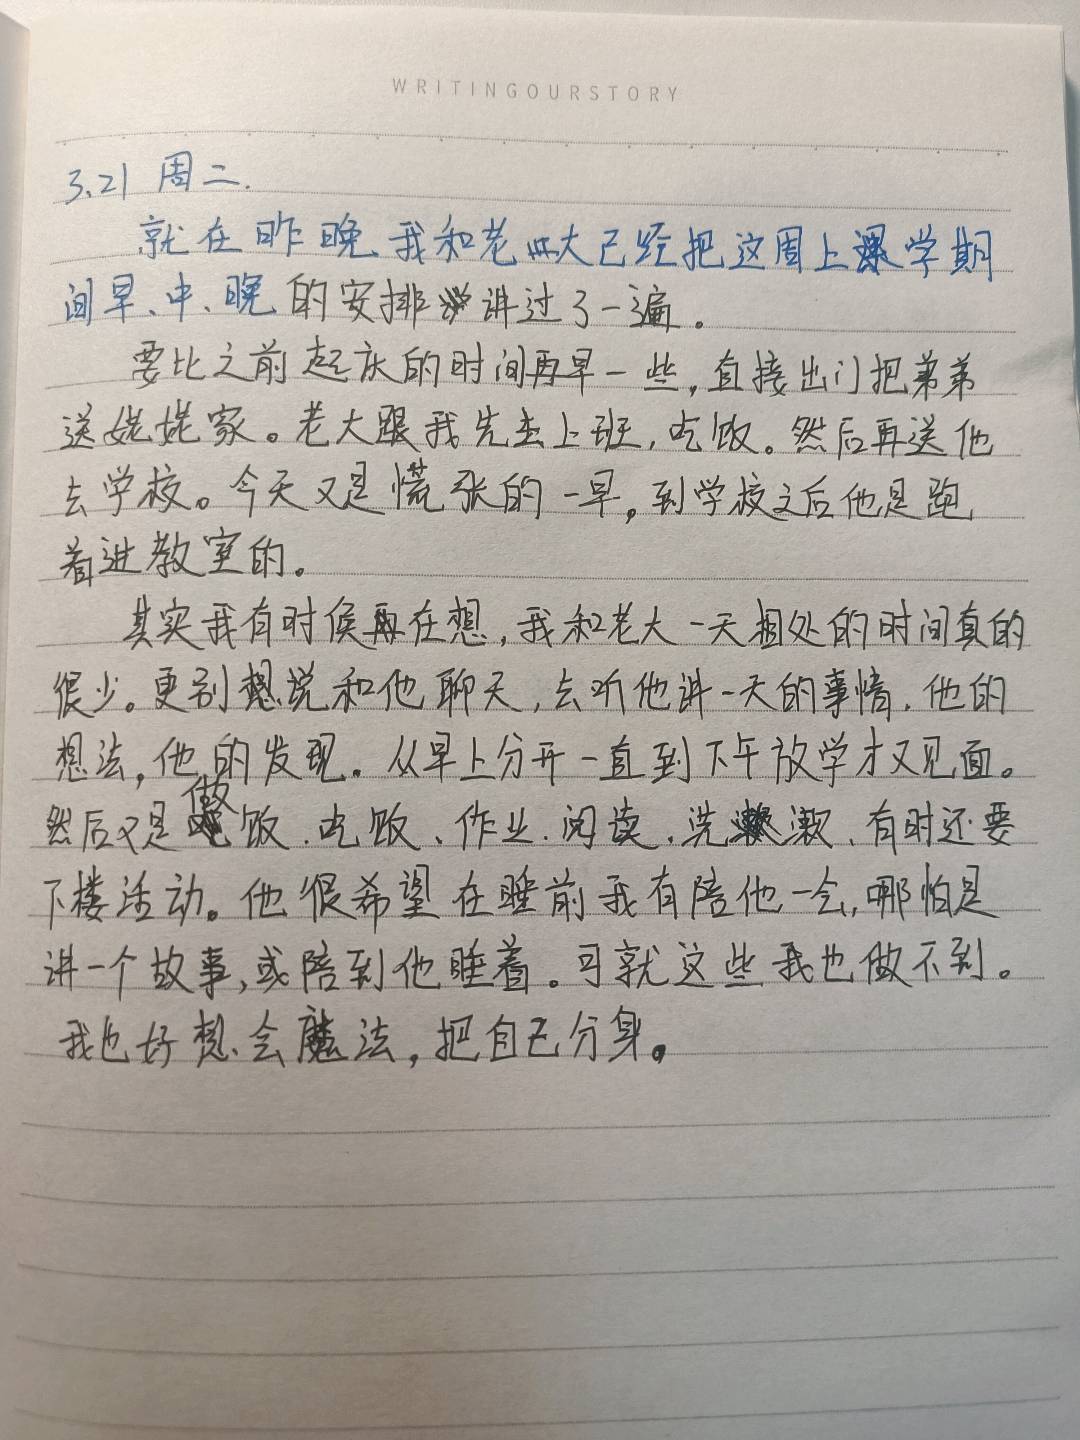 WRITINGOURSTORY
3.21 周二.
就在昨晚、我和老大已经把这周上学期
间早、中、晚的安排讲过了一遍。
要比之前起床的时间再早一些,直接出门把弟弟
送姥姥家。老大跟我先去上班,吃饭。然后再送他
去学校。今天又是慌张的一早。到学校之后他是跑
着进教室的。
其实我有时候在想,我和老大一天相处的时间真的
很少。更别说和他聊天,去听他讲一天的事情.他的
想法,他的发现。从早上分开一直到下午放学才又见面。
然后又是做饭、吃饭、作业、阅读、洗漱、有时还要
下楼活动。他很希望在睡前我有陪他一会,哪怕是
讲一个故事,或陪到他睡着。可就这些我也做不到。
我也好想会魔法,把自己分身。